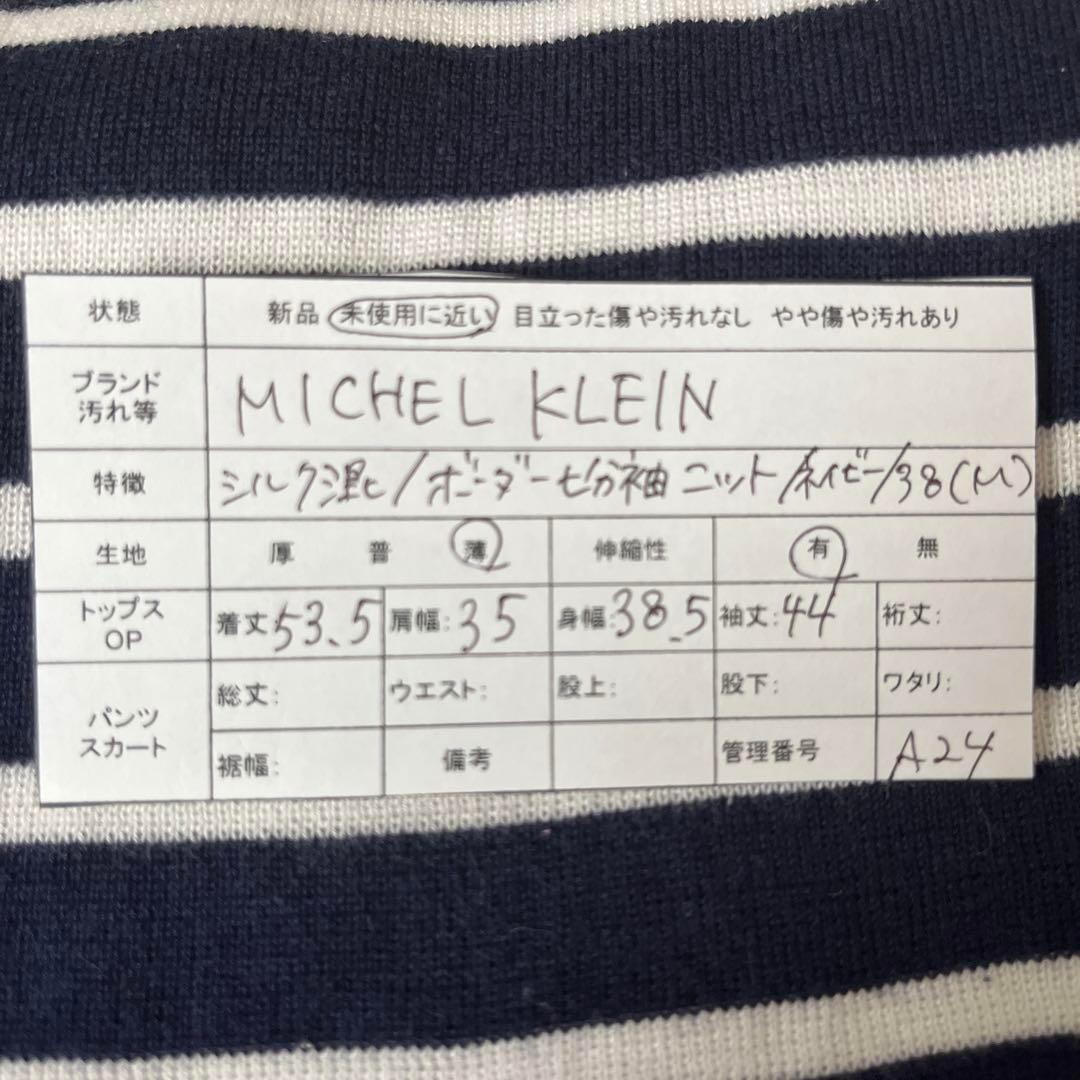 状態 新品 未使用に近い 目立った傷や汚れなし やや傷や汚れあり
ブランド 汚れ等 MICHEL KLEIN
特徴 シルク混/ボーダー七分袖ニット/ネイビー/38(M)
生地 厚 普 薄 伸縮性 有 無
トップス OP 着丈:53.5 肩幅:35 身幅:38.5 袖丈:44 裄丈:
パンツ スカート 総丈: ウエスト: 股上: 股下: ワタリ:
裾幅: 備考 管理番号 A24